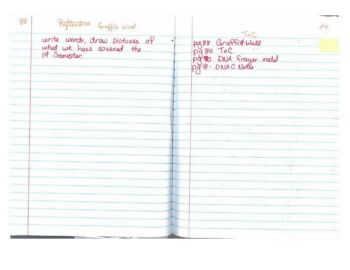 88
Reflection Graffiti Wall
write words, draw pictures of
what we have covered the
1st Semester
89
ToC
pg 88 Graffiti Wall
pg 89. ToC
pg 90. DNA Frayer model
pg 9- DNA C Notes